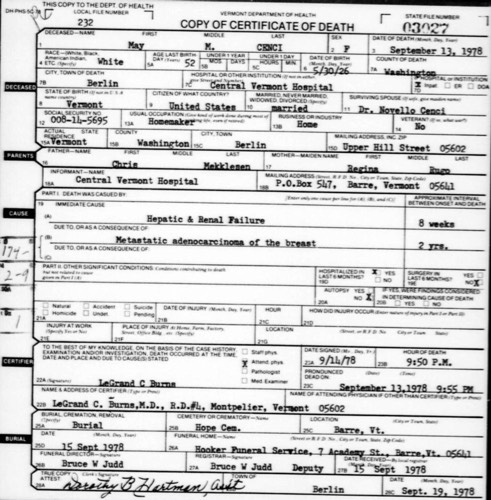 THIS COPY TO THE DEPT. OF HEALTH
DH-PHS-5C LOCAL FILE NUMBER VERMONT DEPARTMENT OF HEALTH STATE FILE NUMBER
232 COPY OF CERTIFICATE OF DEATH
DECEASED—NAME FIRST MIDDLE LAST SEX DATE OF DEATH (Month, Day, Year)
1 May M. CENCI 2 F 3 September 13, 1978
RACE—White, Black, American Indian, Etc. (Specify) AGE LAST BIRTHDAY (Yrs.) UNDER 1 YEAR MOS DAYS UNDER 1 DAY HOURS MIN DATE OF BIRTH (Month, Day, Year) COUNTY OF DEATH
4 White 5A 52 5B 5C 6 5/30/26 7A Washington
CITY, TOWN OF DEATH HOSPITAL OR OTHER INSTITUTION HOSPITAL OR INSTITUTION
7B Berlin 7C Central Vermont Hospital X Inpat ER DOA
DECEASED
STATE OF BIRTH CITIZEN OF WHAT COUNTRY? MARRIED, NEVER MARRIED, WIDOWED, DIVORCED (Specify) SURVIVING SPOUSE (If wife, give maiden name)
8 Vermont 9 United States 10 married 11 Dr. Novello Cenci
SOCIAL SECURITY NO USUAL OCCUPATION BUSINESS OR INDUSTRY VETERAN
12 008-14-5695 13A Homemaker 13B Home 14 No
ACTUAL RESIDENCE STATE COUNTY CITY, TOWN MAILING ADDRESS INC ZIP
15A Vermont 15B Washington 15C Berlin 15D Upper Hill Street 05602
PARENTS
FATHER—NAME FIRST MIDDLE LAST MOTHER—MAIDEN NAME FIRST MIDDLE LAST
16 Chris Mekklesen 17 Regina Rugo
INFORMANT—NAME MAILING ADDRESS
18A Central Vermont Hospital 18B P.O.Box 547, Barre, Vermont 05641
PART I. DEATH WAS CAUSED BY: (Enter only one cause per line for (A), (B), and (C)) APPROXIMATE INTERVAL BETWEEN ONSET AND DEATH
19 IMMEDIATE CAUSE
CAUSE
(A) Hepatic & Renal Failure 8 weeks
DUE TO, OR AS A CONSEQUENCE OF:
(B) Metastatic adenocarcinoma of the breast 2 yrs.
DUE TO, OR AS A CONSEQUENCE OF:
(C)
174-
PART II. OTHER SIGNIFICANT CONDITIONS: Conditions contributing to death but not related to cause given in Part I (A) HOSPITALIZED IN LAST 6 MONTHS? X YES NO SURGERY IN LAST 6 MONTHS? YES X NO
2-9
AUTOPSY YES X NO IF YES, WERE FINDINGS CONSIDERED IN DETERMINING CAUSE OF DEATH YES NO
Natural Accident Suicide Homicide Undet. Pending DATE OF INJURY (Month, Day, Year) HOUR HOW DID INJURY OCCUR? (Enter nature of injury in Part I or Part II)
1
21A 21B 21C 21D
INJURY AT WORK (Specify Yes or No) PLACE OF INJURY At Home, Farm, Factory, Street, Office Bldg., etc. (Specify) LOCATION
21E 21F 21G
TO THE BEST OF MY KNOWLEDGE, ON THE BASIS OF THE CASE HISTORY EXAMINATION AND/OR INVESTIGATION, DEATH OCCURRED AT THE TIME, DATE AND PLACE AND DUE TO CAUSE(S) STATED
CERTIFIER
Staff phys. X Attend. phys. Pathologist Med. Examiner
DATE SIGNED HOUR OF DEATH
9/14/78 9:50 P.M.
PRONOUNCED DEAD ON
September 13,1978 9:55 PM
22A (Signature) LeGrand C Burns
NAME & ADDRESS OF CERTIFIER (Type or Print) NAME OF ATTENDING PHYSICIAN IF OTHER THAN CERTIFIER
22B LeGrand C. Burns,M.D., R.D.#4, Montpelier, Vermont 05602
BURIAL
BURIAL, CREMATION, REMOVAL CEMETERY OR CREMATORY—NAME LOCATION
25A Burial 25B Hope Cem. 25C Barre, Vt.
DATE (Month, Day, Year) FUNERAL HOME—NAME
25D 15 Sept 1978 26A Hooker Funeral Service, 7 Academy St., Barre,Vt. 05641
FUNERAL DIRECTOR—Signature REGISTRAR—Signature DATE RECEIVED
26B Bruce W Judd 27A Bruce W Judd Deputy 27B 15 Sept 1978
TRUE COPY Attest TOWN OF DEATH DATE
28A Dorothy B Hartman, Asst Berlin 28C Sept. 19, 1978